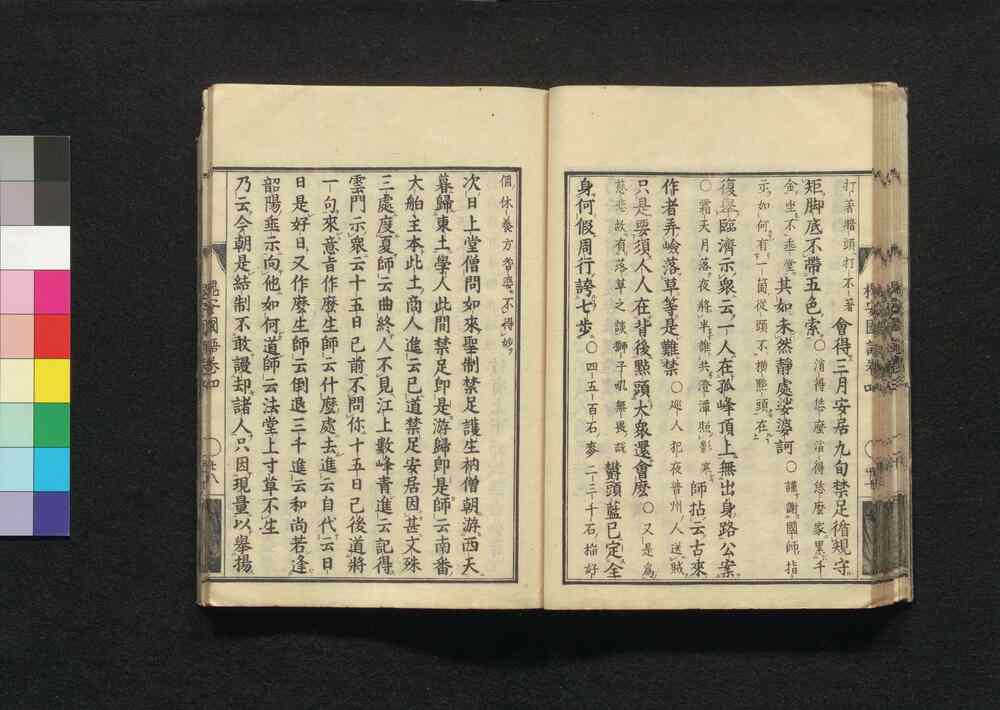 打著牆頭打不著 會得三月安居九旬禁足循規守
矩脚底不帶五色索○消得恁麼消得恁麼家累千
金坐不垂堂其如未然靜處娑婆訶○謹謝國師指
示如何有一箇從頭不橫點頭在
復舉臨濟示衆云一人在孤峰頂上無出身路公案
○霜天月落夜將半誰共澄潭照影寒師拈云古來
作者弄嶮落草等是難禁○廵人犯夜普州人送賊
只是要須人人在背後點頭大衆還會麼○又是爲
慈悲故有落草之談獅子吼無畏説欝頭藍已定全
身何假周行誇七步○四五百石麥二三千石稻好
個休養方香婆不得妙
次日上堂僧問如來聖制禁足護生衲僧朝游西天
暮歸東土學人此間禁足即是游歸即是師云南番
大舶主本此土商人進云已道禁足安居因甚文殊
三處度夏師云曲終人不見江上數峰青進云記得
雲門示衆云十五日已前不問你十五日已後道將
一句來意旨作麼生師云什麼處去進云自代云日
日是好日又作麼生師云倒退三千進云和尚若逢
韶陽垂示向他如何道師云法堂上寸草不生
乃云今朝是結制不敢謾却諸人只因現量以舉揚
槐安國語卷四